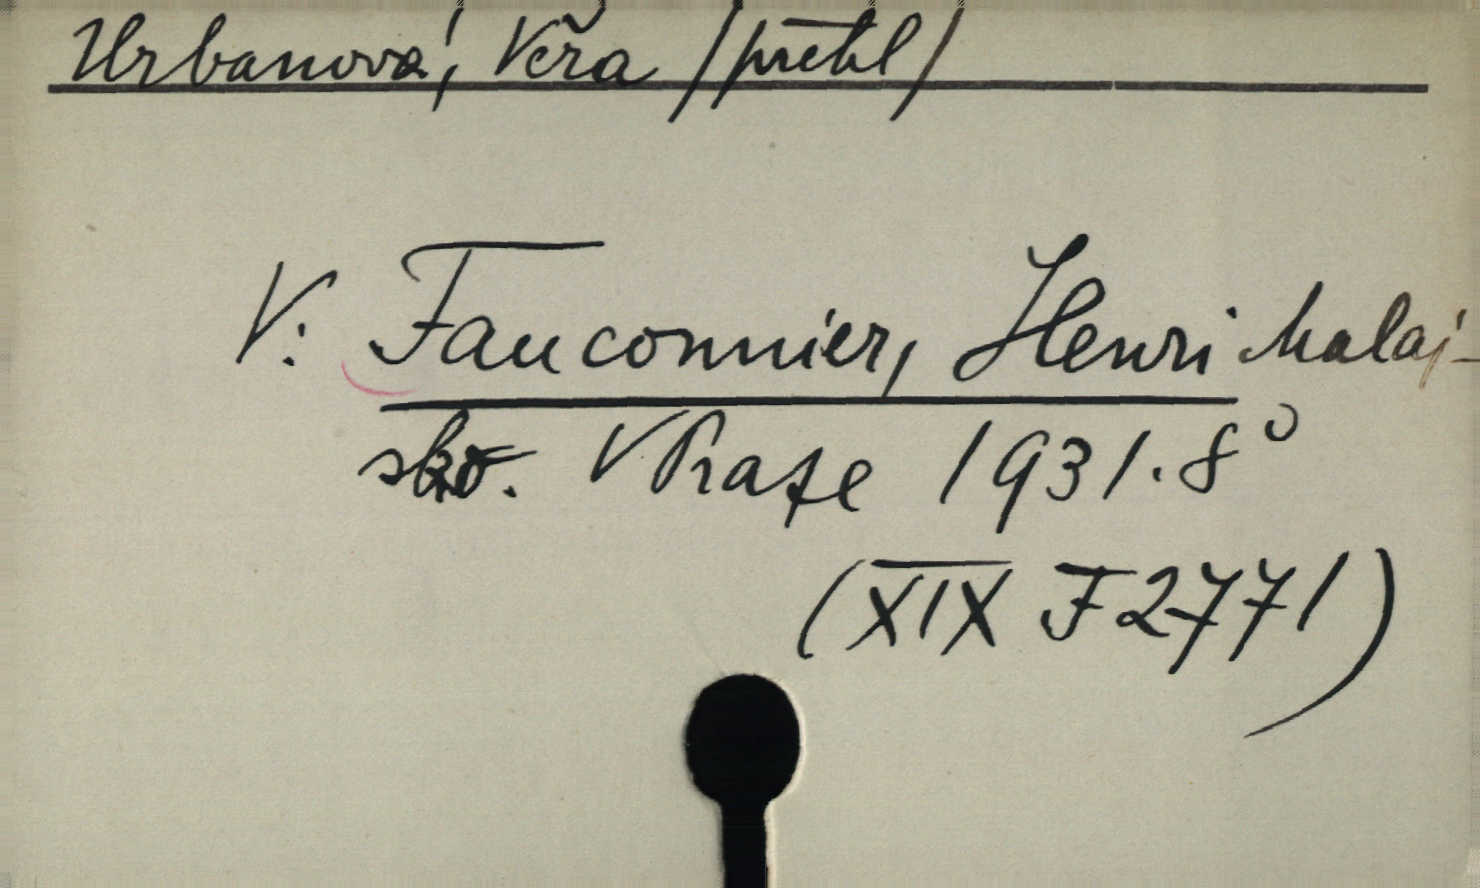 Urbanová, Věra /překl/
V: Fauconnier, Henri Malaj-
sko. V Praze 1931. 8°
(XIX F 2771)